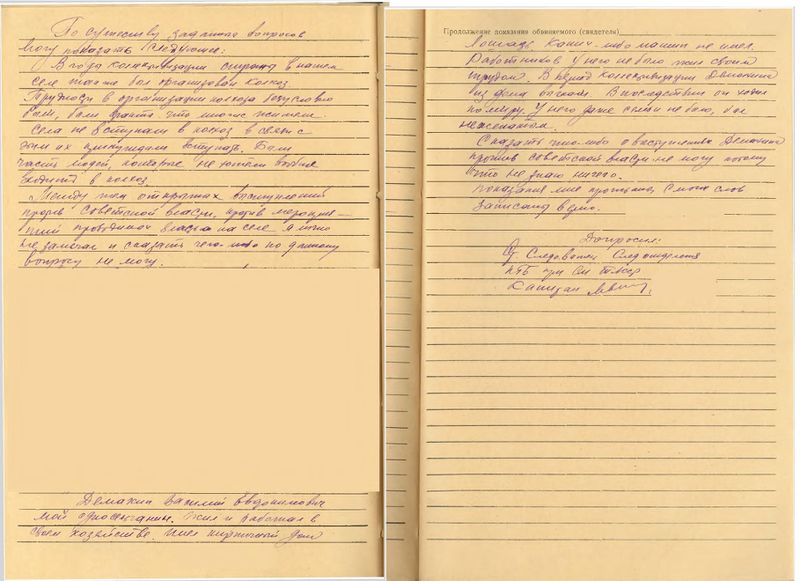 По существу заданных вопросов
могу показать следующее:
В года коллективизации страны в нашем
селе также был организован колхоз.
Трудности в организации колхоза безусловно
были, были факты что многие жители
села не вступали в колхоз в связи с
чем их принуждали вступать. Были
часть людей, которые не хотели вообще
входить в колхоз.
Между тем открытых выступлений
против Советской власти, против мероприя-
тий проводимых власти на селе я лично
не замечал и сказать чего-либо по данному
вопросу не могу.
Демакин Василий Евдокимович
мой односельчанин. Жил и работал в
своем хозяйстве. Имел кирпичный дом
Продолжение показание обвиняемого (свидетеля)
Лошадь каких-либо машин не имел.
Работников у него не было жил своим
трудом. В период коллективизации Демакина
из дома выгнали. В последствии он ходил
по миру. У него даже семьи не было, был
не женатым.
Сказать что-либо о выступлениях Демакина
против советской власти не могу потому
что не знаю ничего.
Показания мне прочитаны, с моих слов
записано верно.
Допросил:
Ст. Следователь Следотделения
КГБ при См ТАССР
Капитан